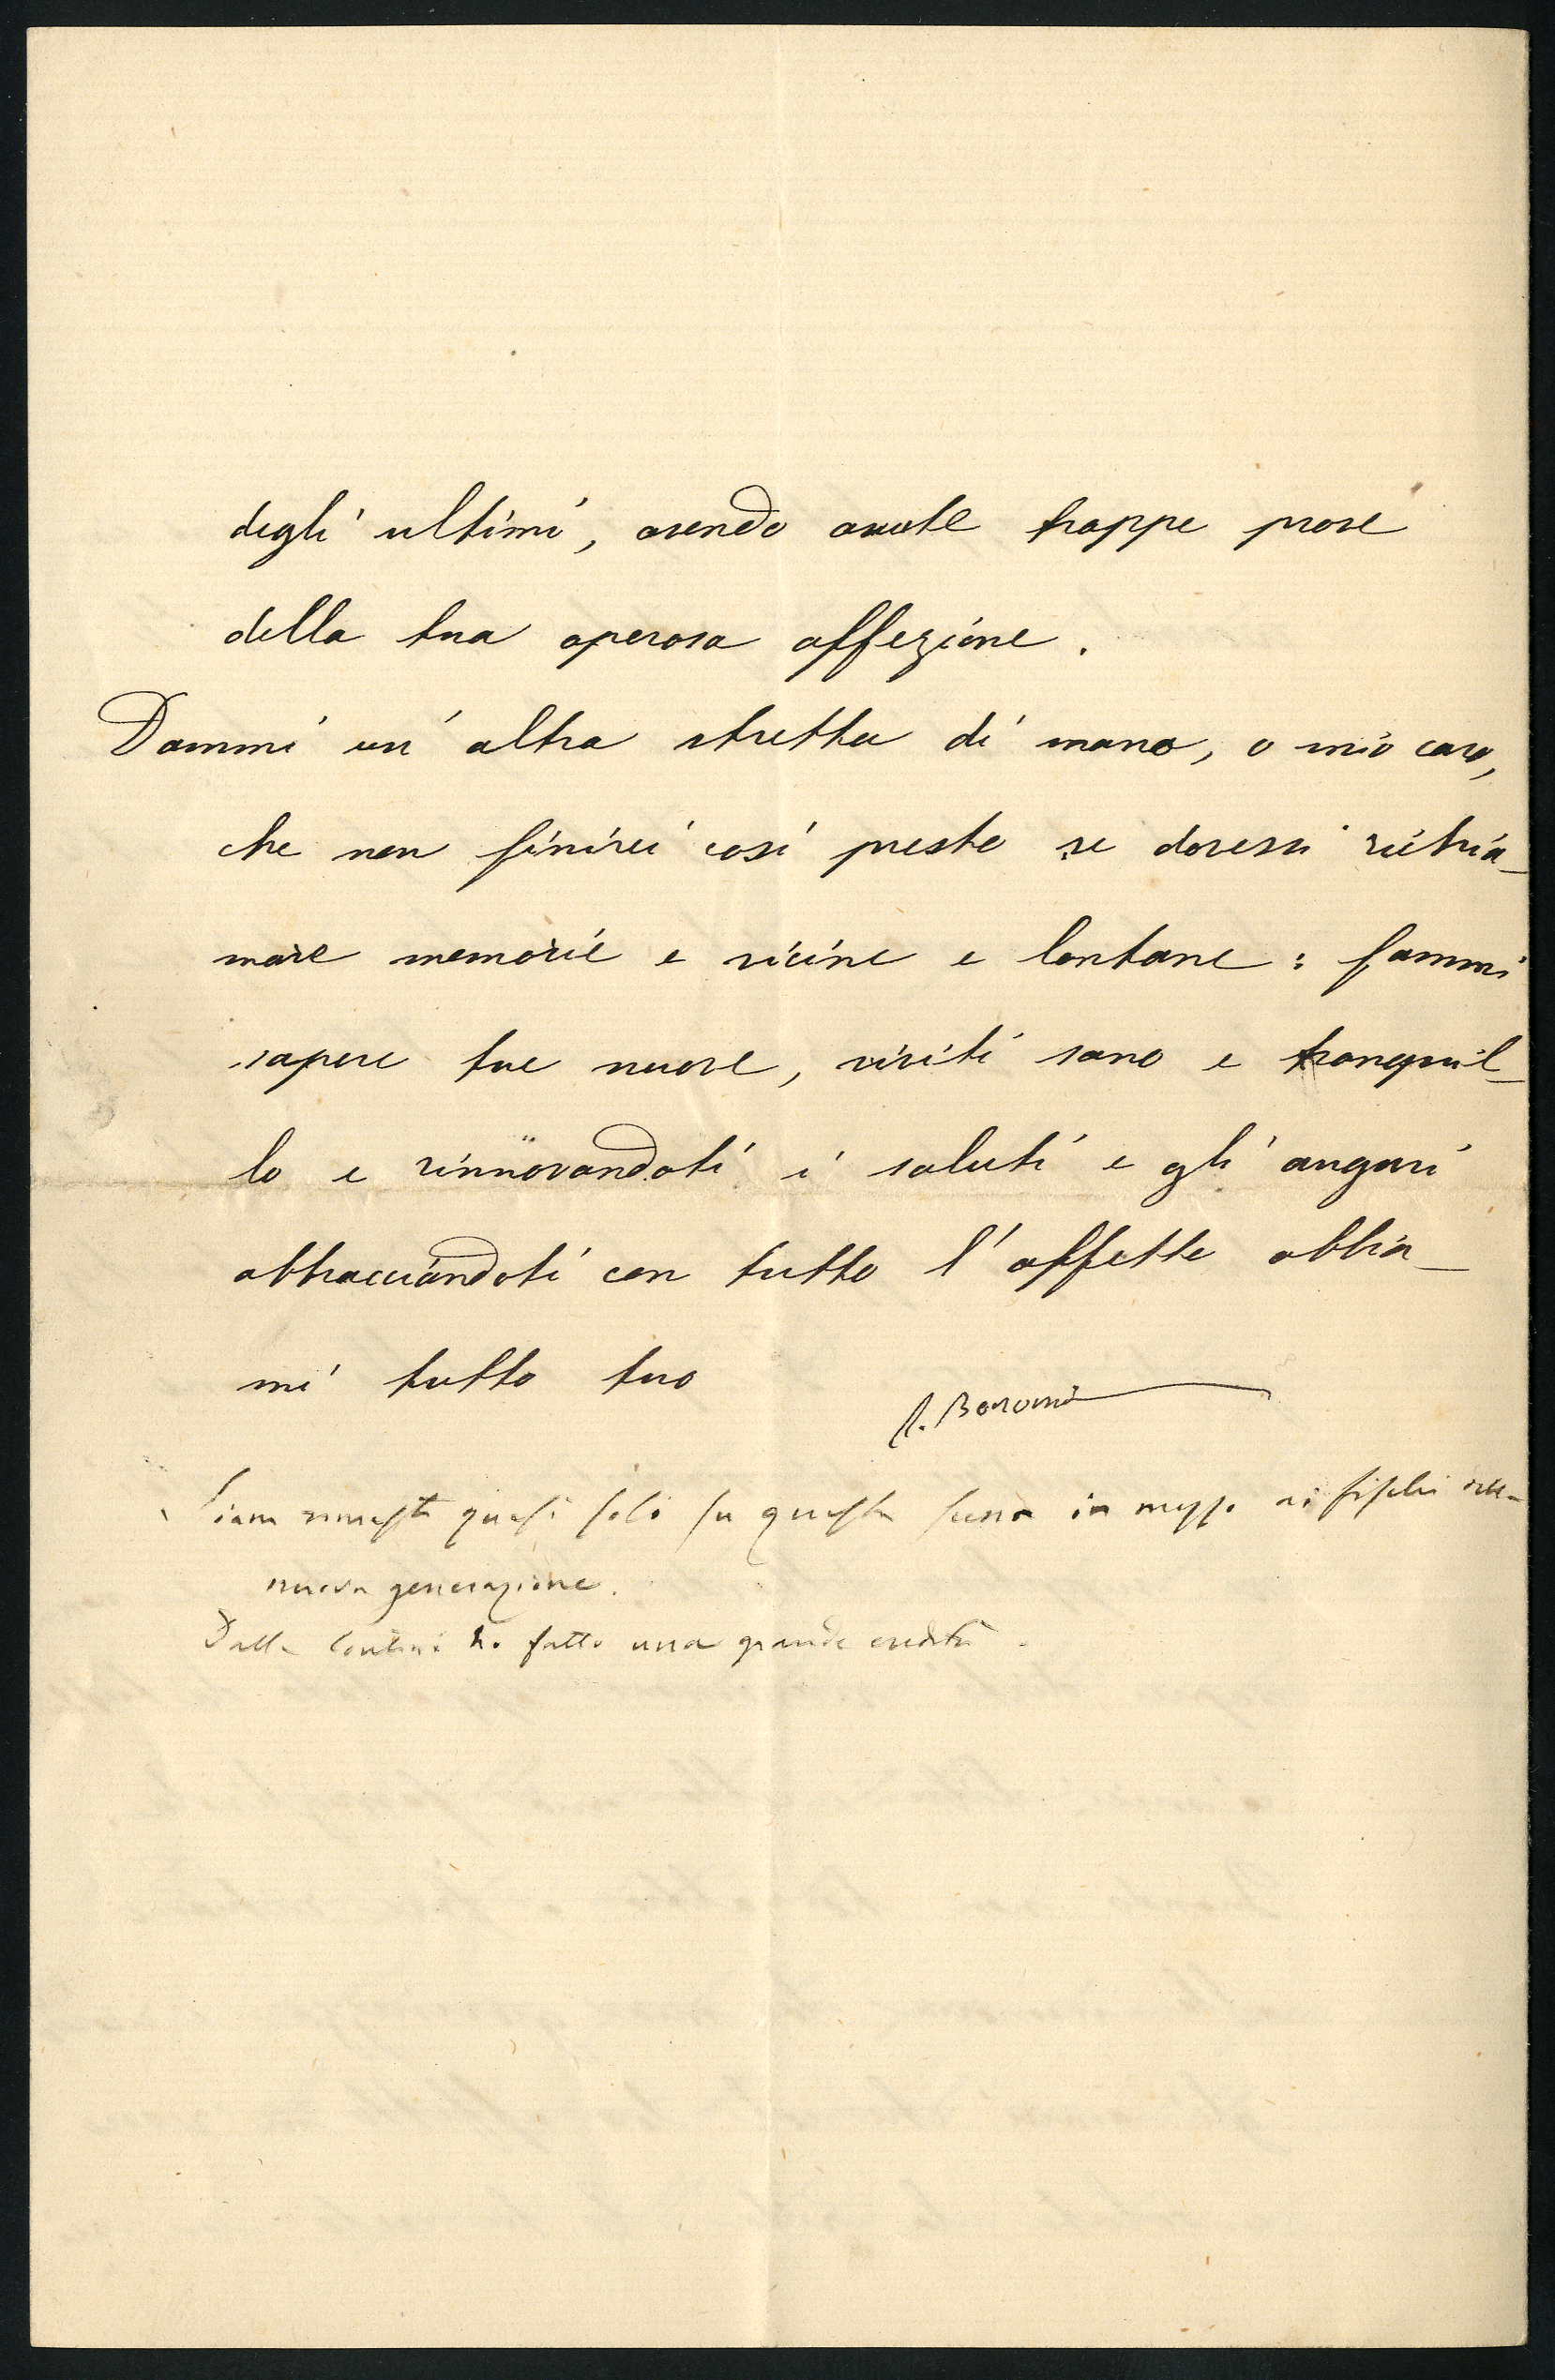 degli ultimi, avendo avute troppe prove
della tua operosa affezione.
Dammi un' altra stretta di mano, o mio caro,
che non finirei così presto se dovessi richia-
mare memorie e vicine e lontane: fammi
sapere tue nuove, viviti sano e tranquil-
lo e rinnovandoti i saluti e gli auguri
abbracciandoti con tutto l'affetto abbia-
mi tutto tuo
Bonomi
Siam rimasti quasi soli su questa scena in mezzo ai fischi
nuova generazione.
Dalla ho fatto una grande eredità.